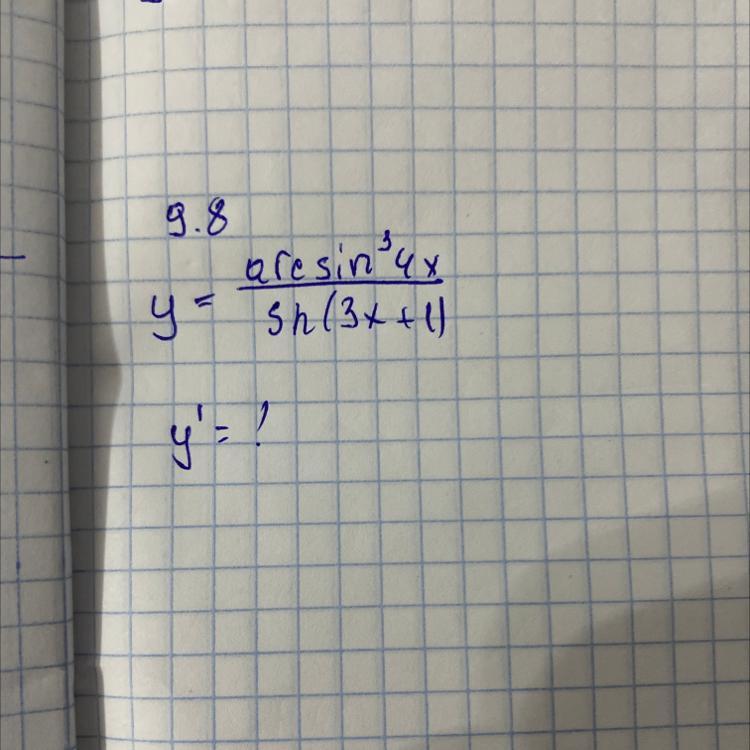 9.8
y = arcsin³4x / sh(3x+1)
y' = !